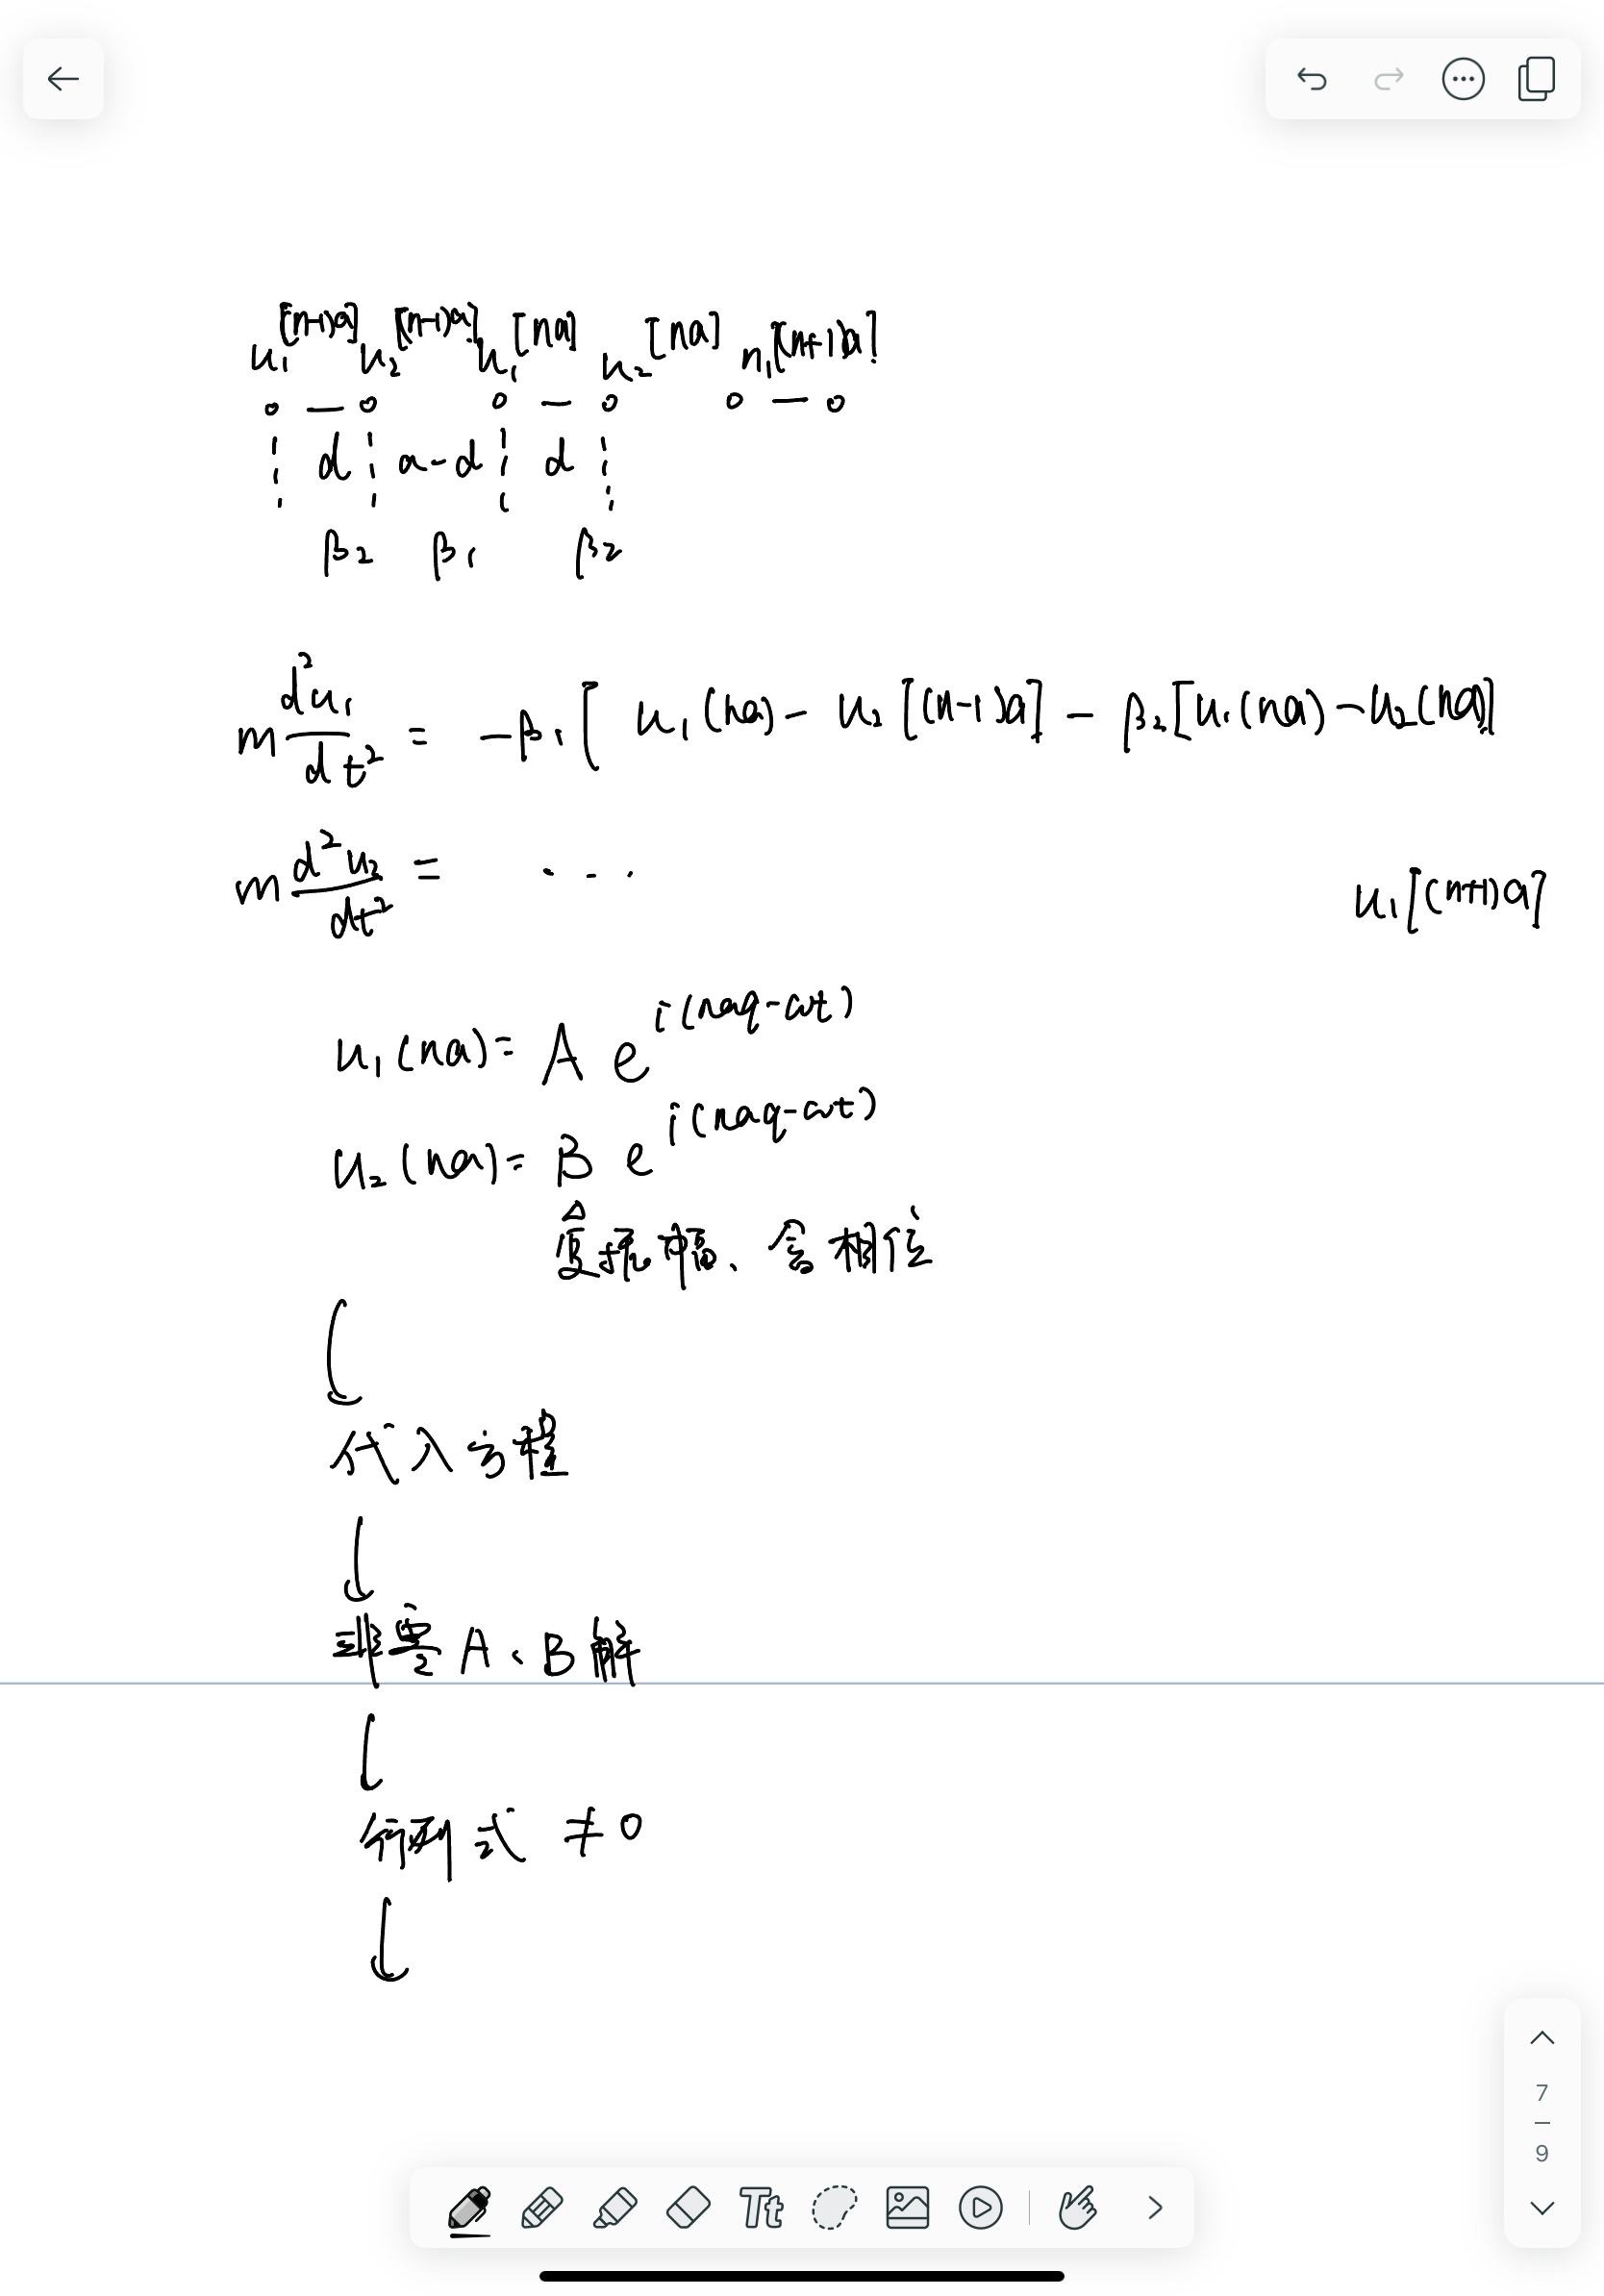 u₁[(n-1)a] u₂[(n-1)a] u₁[na] u₂[na] n₁[(n+1)a]
d a-d d
β₂ β₁ β₂
m d²u₁/dt² = -β₁[ u₁(na) - u₂[(n-1)a] - β₂[u₁(na) - u₂(na)]
m d²u₂/dt² = ...
u₁[(n+1)a]
u₁(na) = A e^{i(naq-ωt)}
u₂(na) = B e^{i(naq-ωt)}
复振幅、含相位
代入方程
非零A、B解
行列式 ≠0
Tt
7
9